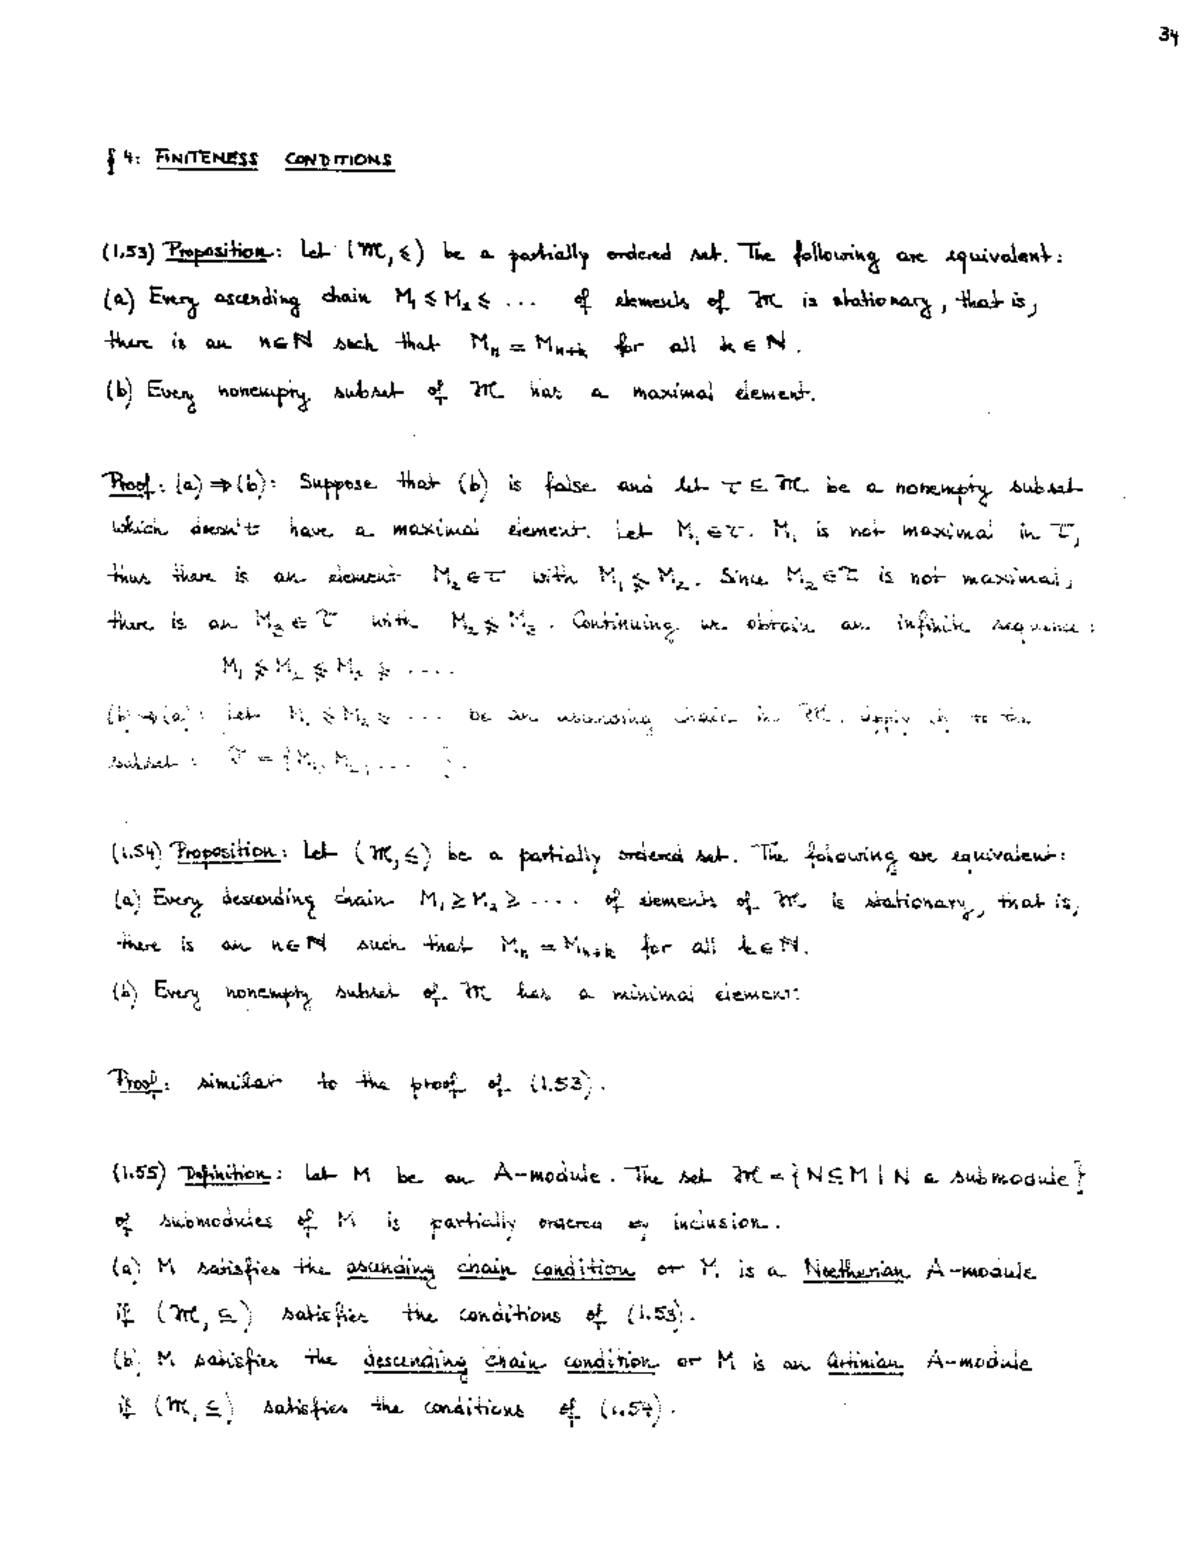 34
§ 4: FINITENESS CONDITIONS
(1.53) Proposition: Let (𝓜, ≤) be a partially ordered set. The following are equivalent:
(a) Every ascending chain M₁ ≤ M₂ ≤ ... of elements of 𝓜 is stationary, that is,
there is an n ∈ ℕ such that Mₙ = Mₙ₊ₖ for all k ∈ ℕ.
(b) Every nonempty subset of 𝓜 has a maximal element.
Proof: (a) ⇒ (b): Suppose that (b) is false and let τ ⊆ 𝓜 be a nonempty subset
which doesn't have a maximal element. Let M₁ ∈ τ. M₁ is not maximal in τ,
thus there is an element M₂ ∈ τ with M₁ ≨ M₂. Since M₂ ∈ τ is not maximal,
there is an M₃ ∈ τ with M₂ ≨ M₃. Continuing we obtain an infinite sequence:
M₁ ≨ M₂ ≨ M₃ ≨ ....
(b) ⇒ (a): Let M₁ ≤ M₂ ≤ ... be an ascending chain in 𝓜. Apply (b) to the
subset: τ = {M₁, M₂, ... }.
(1.54) Proposition: Let (𝓜, ≤) be a partially ordered set. The following are equivalent:
(a) Every descending chain M₁ ≥ M₂ ≥ .... of elements of 𝓜 is stationary, that is,
there is an n ∈ ℕ such that Mₙ = Mₙ₊ₖ for all k ∈ ℕ.
(b) Every nonempty subset of 𝓜 has a minimal element.
Proof: similar to the proof of (1.53).
(1.55) Definition: Let M be an A-module. The set 𝓜 = {N ⊆ M | N a submodule}
of submodules of M is partially ordered by inclusion.
(a) M satisfies the ascending chain condition or M is a Noetherian A-module
if (𝓜, ⊆) satisfies the conditions of (1.53).
(b) M satisfies the descending chain condition or M is an Artinian A-module
if (𝓜, ⊆) satisfies the conditions of (1.54).